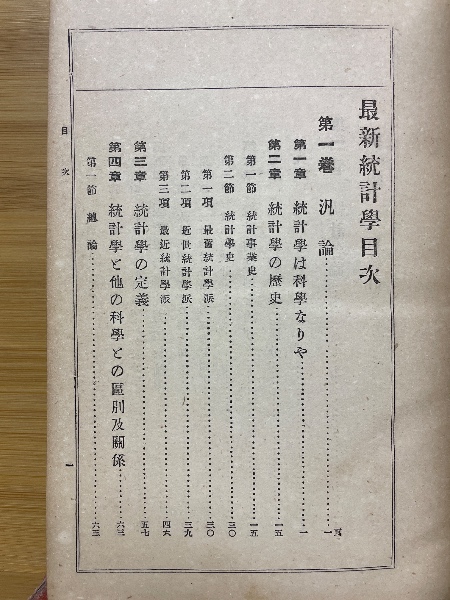 最新統計學目次
頁
第一巻 汎論……一
第一章 統計學は科學なりや……一
第二章 統計學の歷史……一五
第一節 統計事業史……一五
第二節 統計學史……三〇
第一項 最舊統計學派……三〇
第二項 近世統計學派……三九
第三項 最近統計學派……四六
第三章 統計學の定義……五七
第四章 統計學と他の科學との區別及關係……六三
第一節 總論……六三
目次
一